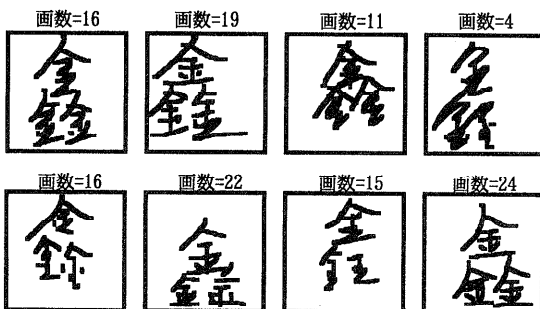 画数=16 画数=19 画数=11 画数=4
鑫 鑫 鑫 鑫
画数=16 画数=22 画数=15 画数=24
鑫 鑫 鑫 鑫